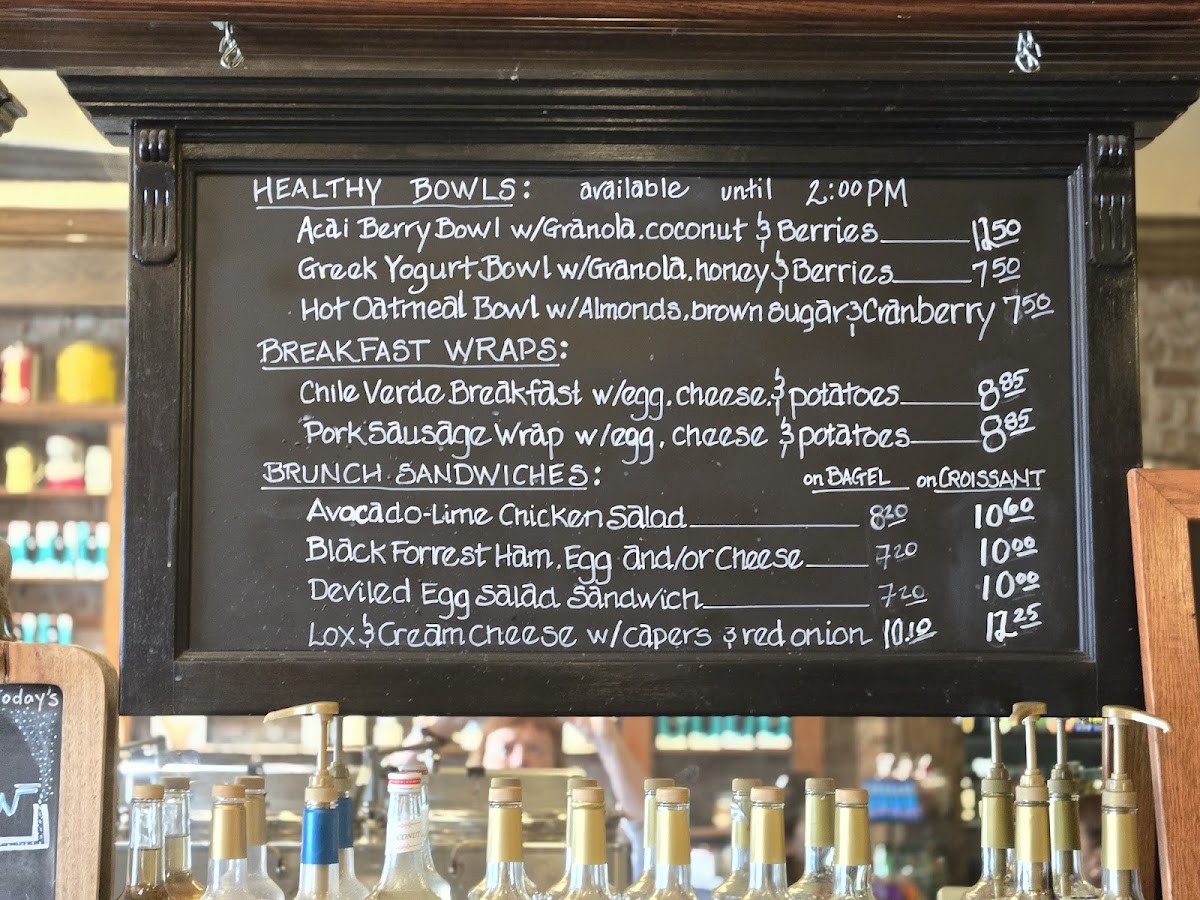 HEALTHY BOWLS: available until 2:00PM
Acai Berry Bowl w/Granola, coconut & Berries 12.50
Greek Yogurt Bowl w/Granola, honey & Berries 7.50
Hot Oatmeal Bowl w/Almonds, brown sugar & Cranberry 7.50
BREAKFAST WRAPS:
Chile Verde Breakfast w/egg, cheese, & potatoes 8.85
Pork Sausage Wrap w/egg, cheese & potatoes 8.85
BRUNCH SANDWICHES: on BAGEL on CROISSANT
Avocado-Lime Chicken Salad 8.20 10.60
Black Forrest Ham, Egg and/or Cheese 7.20 10.00
Deviled Egg Salad Sandwich 7.20 10.00
Lox & Cream Cheese w/capers & red onion 10.10 12.25
Today's